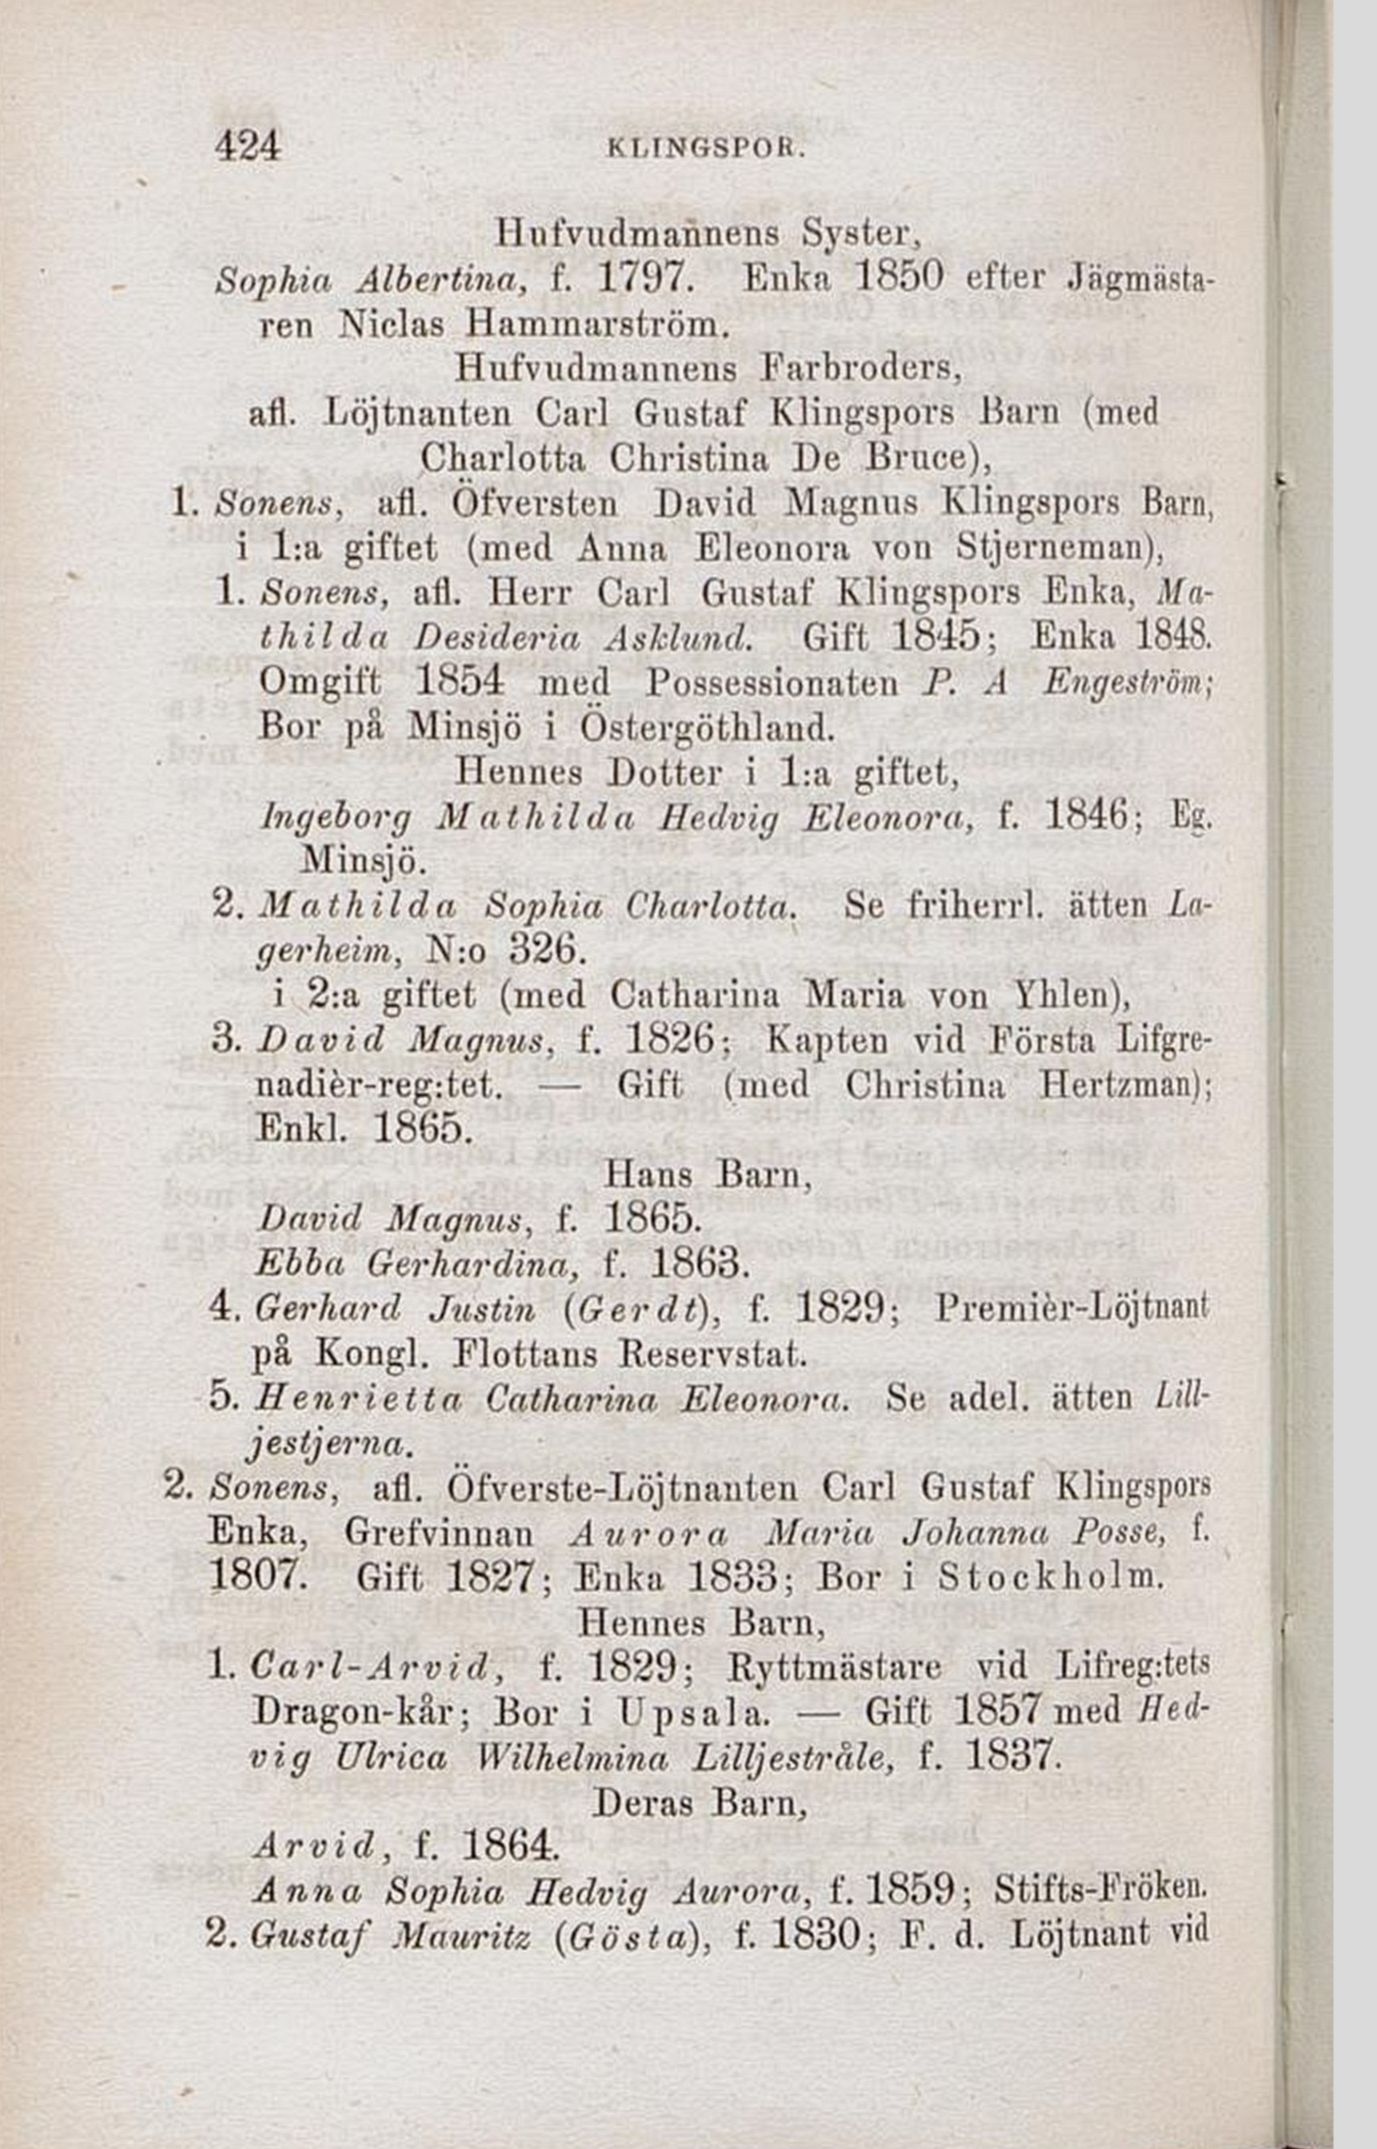 424 KLINGSPOR.
Hufvudmannens Syster,
Sophia Albertina, f. 1797. Enka 1850 efter Jägmästa-
ren Niclas Hammarström.
Hufvudmannens Farbroders,
afl. Löjtnanten Carl Gustaf Klingspors Barn (med
Charlotta Christina De Bruce),
1. Sonens, afl. Öfversten David Magnus Klingspors Barn,
i 1:a giftet (med Anna Eleonora von Stjerneman),
1. Sonens, afl. Herr Carl Gustaf Klingspors Enka, Ma-
thilda Desideria Asklund. Gift 1845; Enka 1848.
Omgift 1854 med Possessionaten P. A Engeström;
Bor på Minsjö i Östergöthland.
Hennes Dotter i 1:a giftet,
Ingeborg Mathilda Hedvig Eleonora, f. 1846; Eg.
Minsjö.
2. Mathilda Sophia Charlotta. Se friherrl. ätten La-
gerheim, N:o 326.
i 2:a giftet (med Catharina Maria von Yhlen),
3. David Magnus, f. 1826; Kapten vid Första Lifgre-
nadièr-reg:tet. — Gift (med Christina Hertzman);
Enkl. 1865.
Hans Barn,
David Magnus, f. 1865.
Ebba Gerhardina, f. 1863.
4. Gerhard Justin (Gerdt), f. 1829; Premièr-Löjtnant
på Kongl. Flottans Reservstat.
5. Henrietta Catharina Eleonora. Se adel. ätten Lill-
jestjerna.
2. Sonens, afl. Öfverste-Löjtnanten Carl Gustaf Klingspors
Enka, Grefvinnan Aurora Maria Johanna Posse, f.
1807. Gift 1827; Enka 1833; Bor i Stockholm.
Hennes Barn,
1. Carl-Arvid, f. 1829; Ryttmästare vid Lifreg:tets
Dragon-kår; Bor i Upsala. — Gift 1857 med Hed-
vig Ulrica Wilhelmina Lilljestråle, f. 1837.
Deras Barn,
Arvid, f. 1864.
Anna Sophia Hedvig Aurora, f. 1859; Stifts-Fröken.
2. Gustaf Mauritz (Gösta), f. 1830; F. d. Löjtnant vid